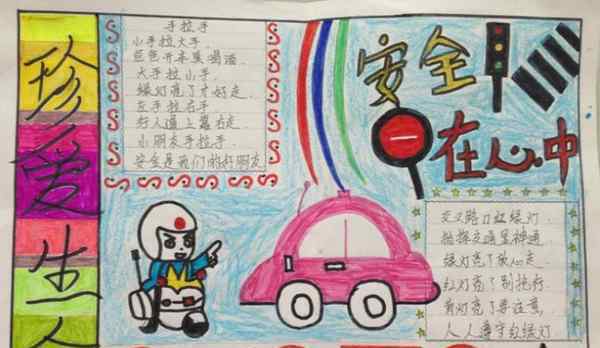 珍爱生
手拉手
小手拉大手
爸爸开车莫喝酒
大手拉小手
绿灯亮了才好走
左手拉右手
行人道上靠右走
小朋友手拉手
安全是我们的好朋友
安全
在心中
交叉路口红绿灯
指挥交通显神通
绿灯亮了放心走
红灯亮了别抢行
黄灯亮了要注意
人人遵守红绿灯